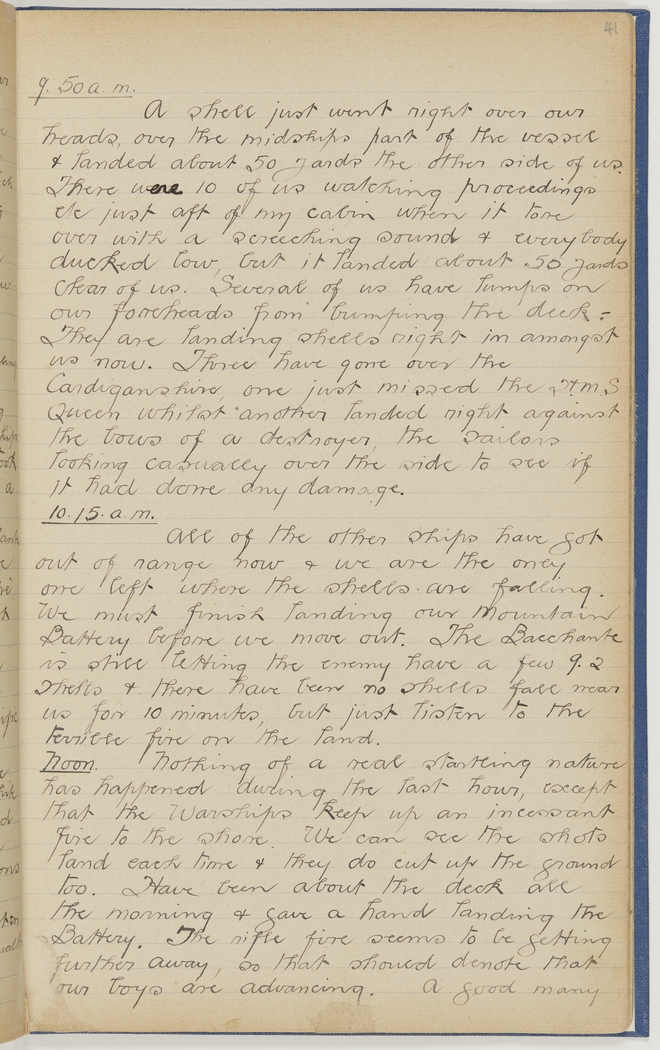 41
9.50 a.m.
A shell just went right over our
heads, over the midships part of the vessel
& landed about 50 yards the other side of us.
There were 10 of us watching proceedings
etc just aft of my cabin when it tore
over with a screeching sound & everybody
ducked low, but it landed about 50 yards
clear of us. Several of us have lumps on
our foreheads from bumping the deck -
They are landing shells right in amongst
us now. Three have gone over the
Cardiganshire, one just missed the H.M.S
Queen whilst another landed right against
the bows of a destroyer, the sailors
looking casually over the side to see if
it had done any damage.
10.15. a.m.
All of the other ships have got
out of range now & we are the only
one left where the shells are falling.
We must finish landing our Mountain
Battery before we move out. The Bacchante
is still letting the enemy have a few 9.2
shells & there have been no shells fall near
us for 10 minutes, but just listen to the
terrible fire on the land.
Noon. Nothing of a real startling nature
has happened during the last hour, except
that the Warships keep up an incessant
fire to the shore. We can see the shots
land each time & they do cut up the ground
too. Have been about the deck all
the morning & gave a hand landing the
Battery. The rifle fire seems to be getting
further away, so that should denote that
our boys are advancing. A good many